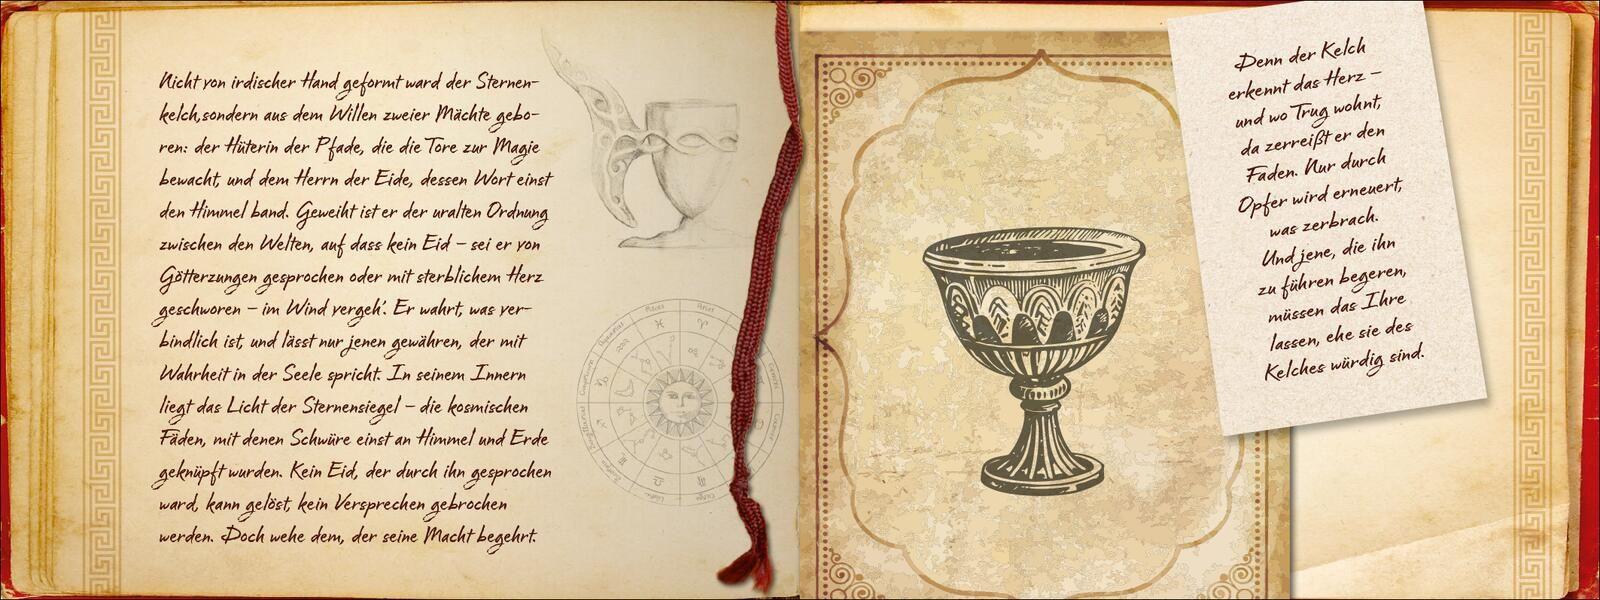 Nicht von irdischer Hand geformt ward der Sternen-
kelch, sondern aus dem Willen zweier Mächte gebo-
ren: der Hüterin der Pfade, die die Tore zur Magie
bewacht, und dem Herrn der Eide, dessen Wort einst
den Himmel band. Geweiht ist er der uralten Ordnung
zwischen den Welten, auf dass kein Eid – sei er von
Götterzungen gesprochen oder mit sterblichem Herz
geschworen – im Wind vergeh'. Er wahrt, was ver-
bindlich ist, und lässt nur jenen gewähren, der mit
Wahrheit in der Seele spricht. In seinem Innern
liegt das Licht der Sternensiegel – die kosmischen
Fäden, mit denen Schwüre einst an Himmel und Erde
geknüpft wurden. Kein Eid, der durch ihn gesprochen
ward, kann gelöst, kein Versprechen gebrochen
werden. Doch wehe dem, der seine Macht begehrt.
Pisces
Aries
Aquarius
Denn der Kelch
erkennt das Herz –
und wo Trug wohnt,
da zerreißt er den
Faden. Nur durch
Opfer wird erneuert,
was zerbrach.
Und jene, die ihn
zu führen begeren,
müssen das Ihre
lassen, ehe sie des
Kelches würdig sind.